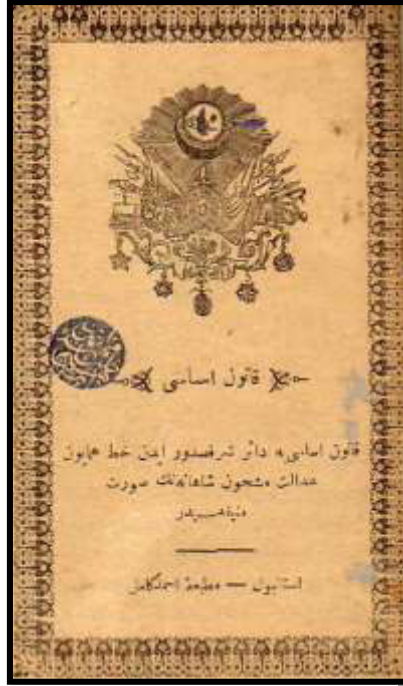 قانون اساسی
قانون اساسی‌یه دائر شرفصدور ایدن خط همایون
عدالت مشحون شاهانه‌نك صورت
منیفه‌سیدر
استانبول — مطبعۀ احمد کامل